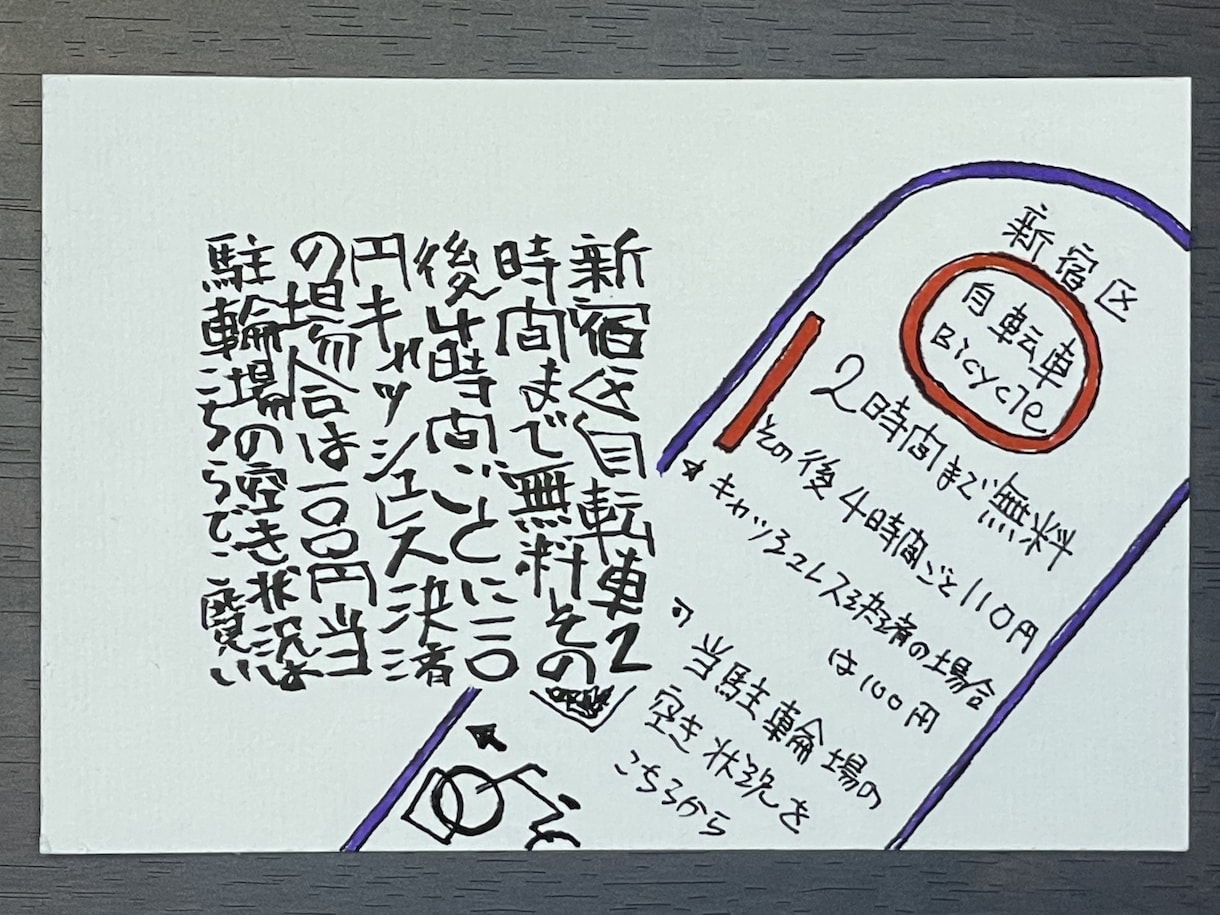 新宿区自転車2
時間まで無料その
後4時間ごとに一一〇
円キャッシュレス決済
の場合は一〇〇円当
駐輪場の空き状況は
こちらでご覧い
新宿区
自転車
Bicycle
2時間まで無料
その後4時間ごと110円
★キャッシュレス決済の場合
は100円
当駐輪場の
空き状況を
こちらから